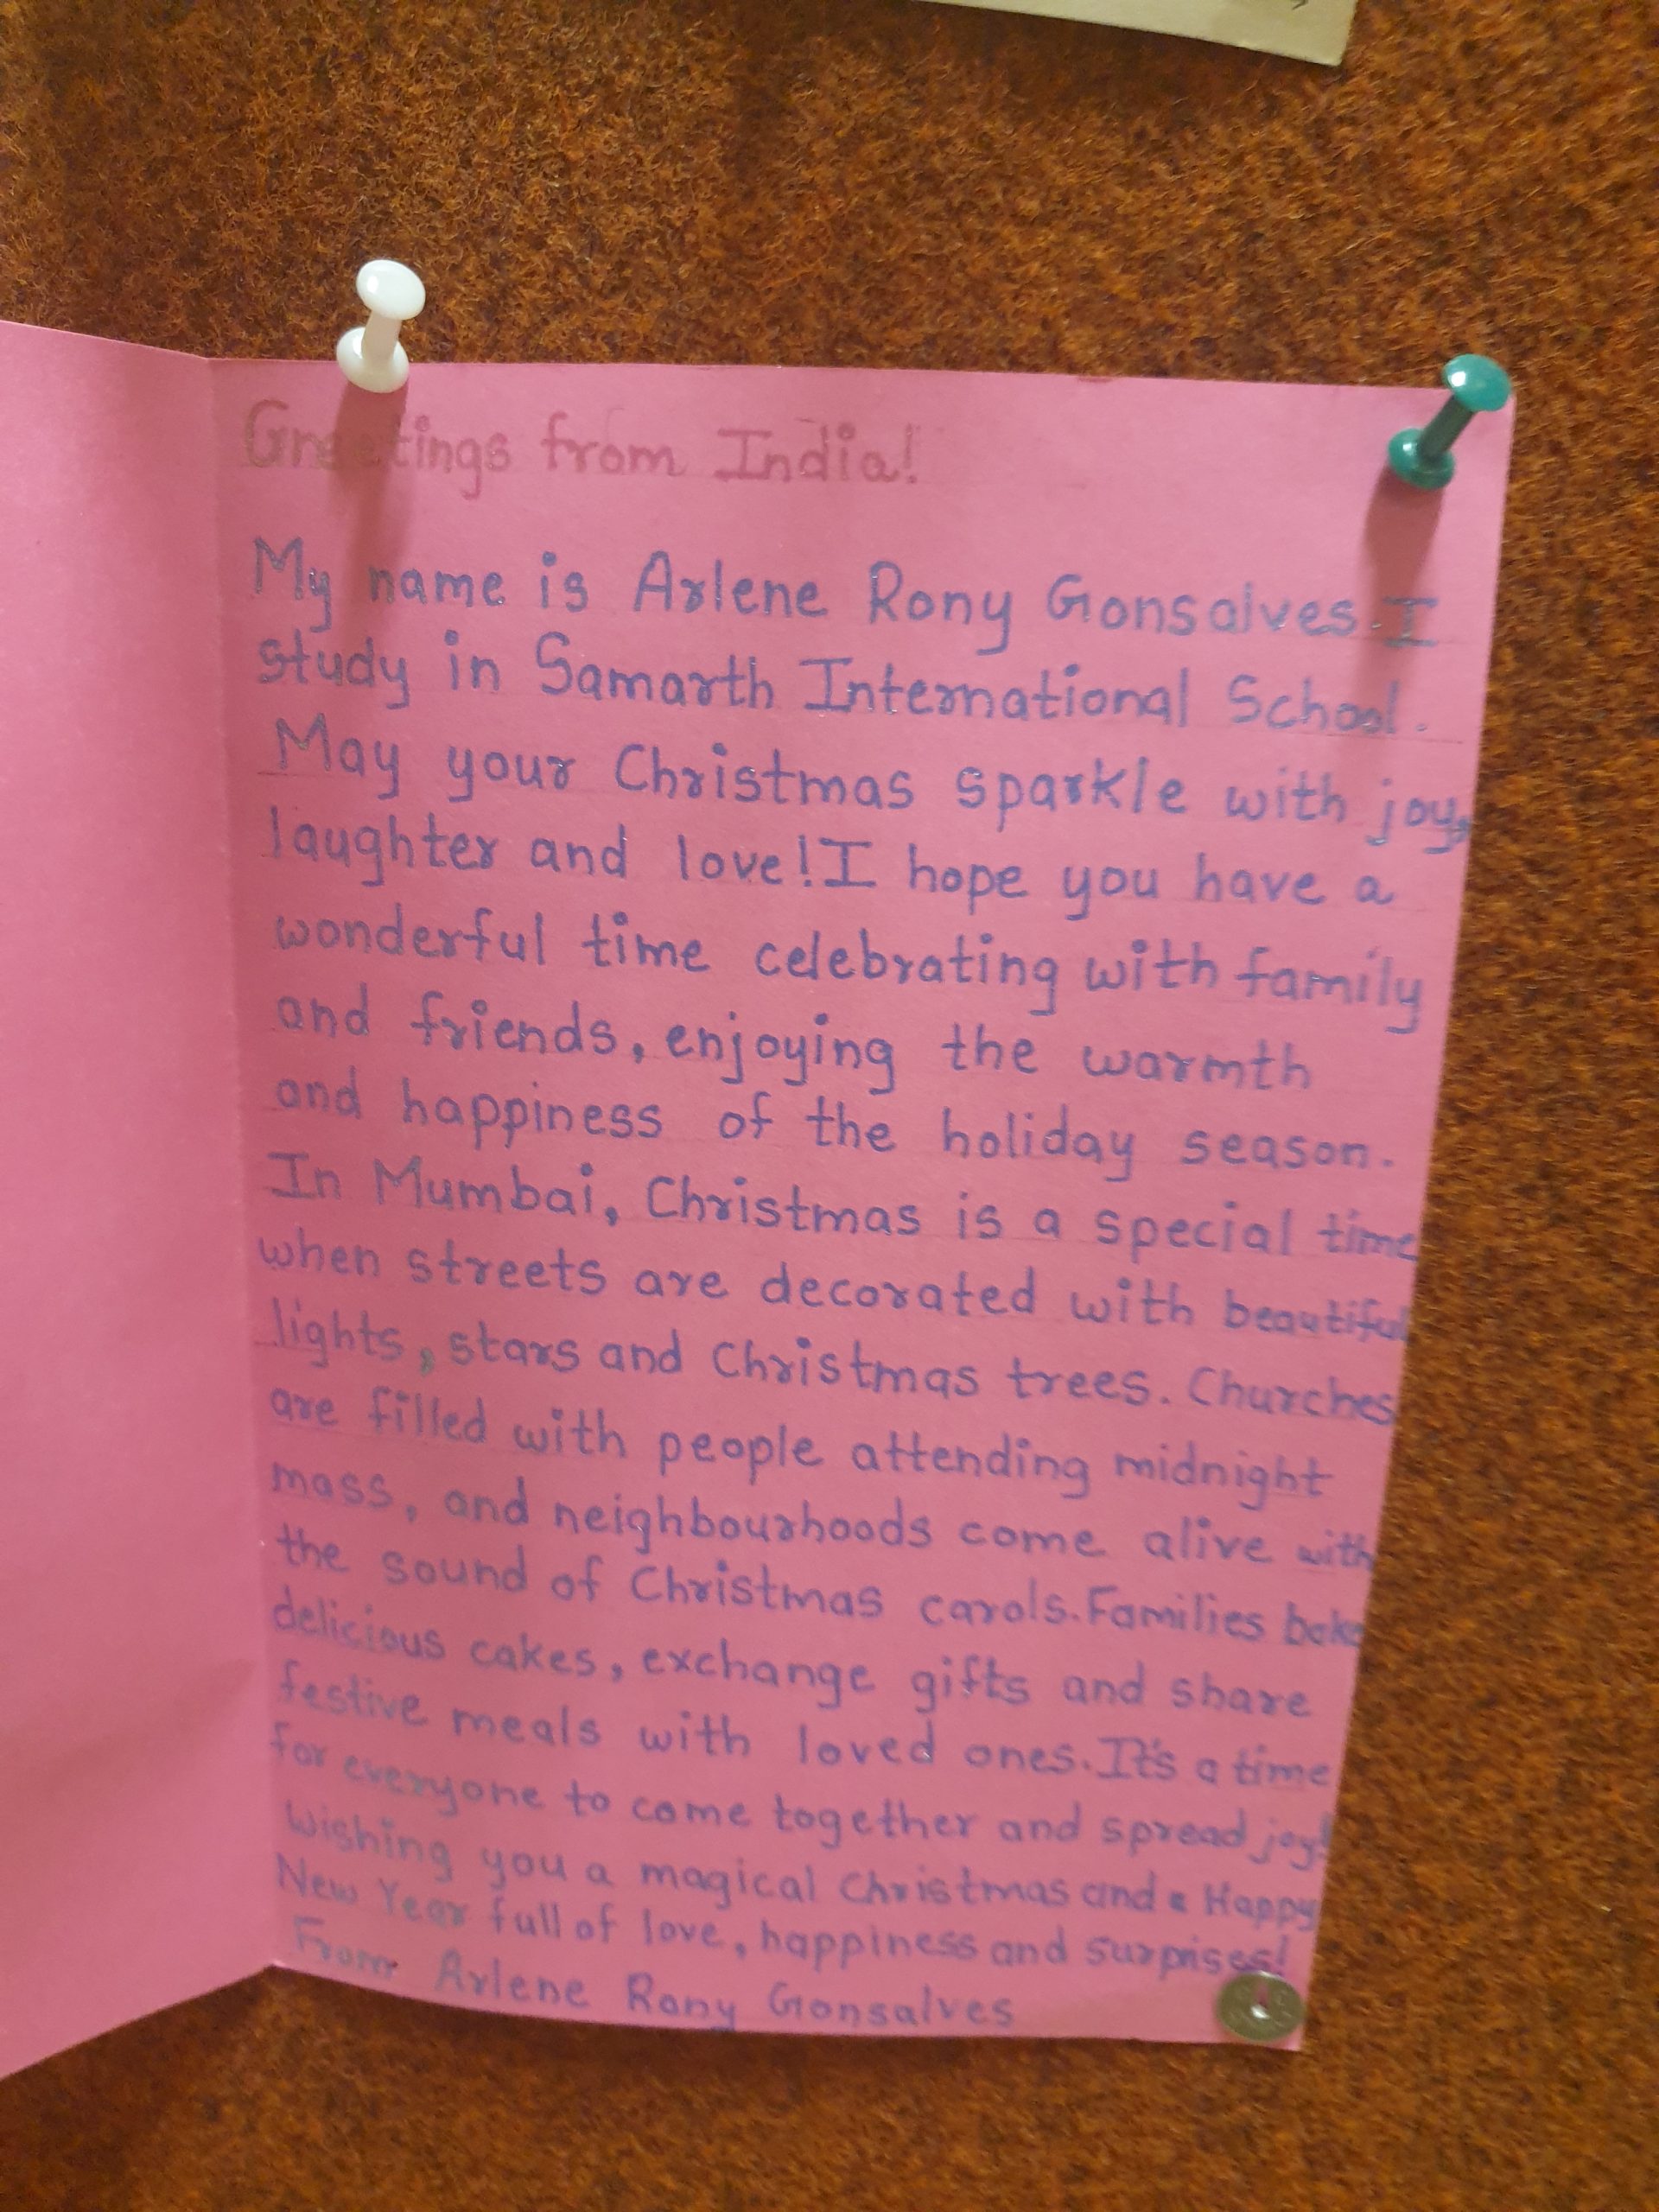 Greetings from India!
My name is Arlene Rony Gonsalves. I
study in Samarth International School.
May your Christmas sparkle with joy,
laughter and love! I hope you have a
wonderful time celebrating with family
and friends, enjoying the warmth
and happiness of the holiday season.
In Mumbai, Christmas is a special time
when streets are decorated with beautiful
lights, stars and Christmas trees. Churches
are filled with people attending midnight
mass, and neighbourhoods come alive with
the sound of Christmas carols. Families bake
delicious cakes, exchange gifts and share
festive meals with loved ones. It's a time
for everyone to come together and spread joy!
Wishing you a magical Christmas and a Happy
New Year full of love, happiness and surprises!
From Arlene Rony Gonsalves